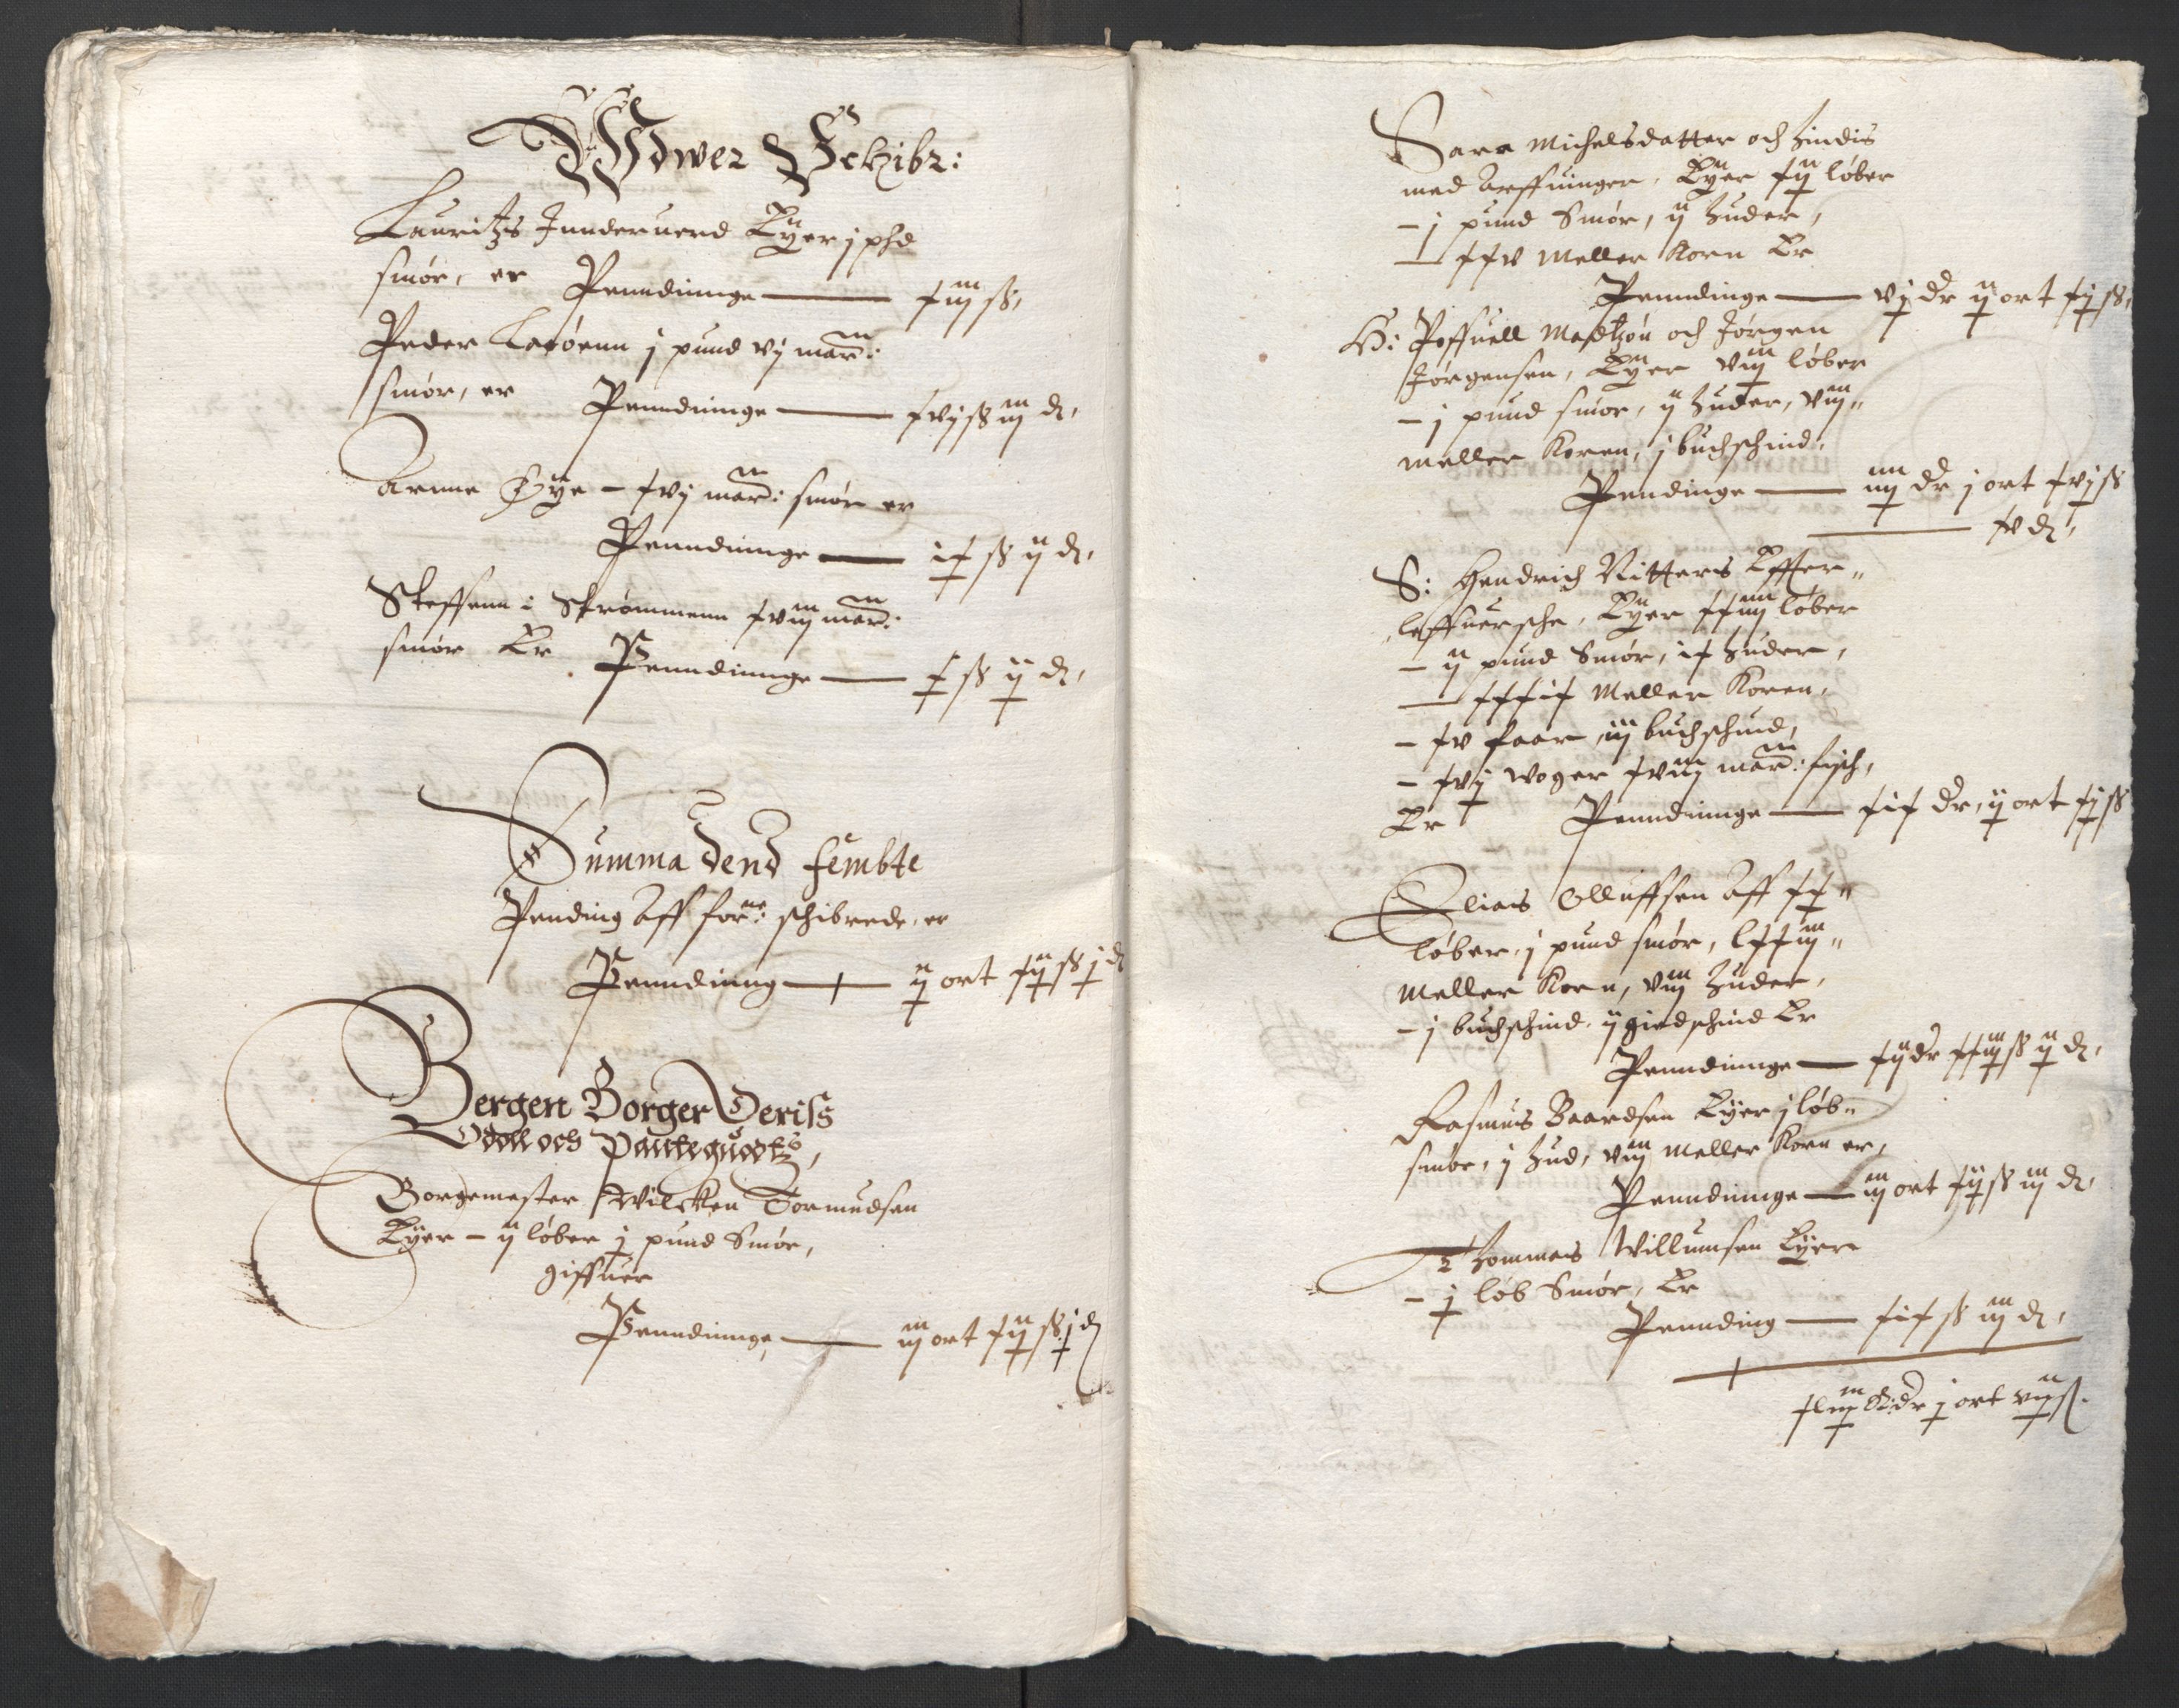 Ydwer Schibr:
Lauritzs Innderuerd Eyer j phd
smør, er Penndinnge — xiij ß,
Peder Larsenn j pund vj mar:
smør, er Penndninge — xvj ß iij d,
Arnne Øye – xvj mar: smør er
Penndninge — ix ß ij d,
Steffenn i Strømmenn xviij mar:
smør Er Penndinnge — x ß ij d,
Summa dend fembte
Pending Aff forne: schibrede, er
Penndinng — ij ort xij ß j d
Bergen Borger Deriss
Odell och Pantteguodtz,
Borgemester Wilcken Tormudsen
Eyer – ij løber j pund Smør,
giffuer
Penndninge, — iij ort xij ß j d
Sara Michelsdatter och hindis
med Arffuinger, Eyer xij løber
– j pund Smør, ij huder,
— xxv Meller Korn Er
Penndinge — vj dr ij ort xij ß,
H: Poffuell Madtzøn och Jørgen
Jørgensen, Eyer viij løber
– j pund smør, ij huder, viij
meller Koren, j buchschind,
Pendinge — iiij dr j ort xvj ß
— xv d,
S: Hendrich Ritters Effter
leffuersche, Eyer xxiiij løber
– ij pund Smør, ix huder,
— xxxix Meller Koren,
– xv faar, iij buchschind,
– xvj woger xviij mar: fisch,
Er Penndninge — xix dr, ij ort xij ß
Elias Olluffsen Aff xx
løber, j pund smør, lxxiij
Meller Korn, viij huder,
– j buchschind, ij giedschind Er
Penndninge — xij dr xxiij ß ij d,
Rasmus Baardsen Eyer j løb
smør, j hud, viij Meller Korn er,
Penndninge — iij ort xij ß iij d,
Thommes Willumsen Eyer
– j løb Smør, Er
Pennding — xix ß iij d,
xliij R: dr j ort vij ß.